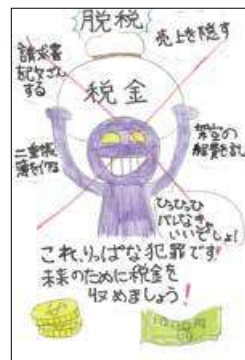 脱税
売上を隠す
請求書
を改ざん
する
税金
二重帳
簿を作る
架空の
経費を記
ひっひっひ
バレなきゃ
いいでしょ!
これ、りっぱな犯罪です!
未来のために税金を
収めましょう!